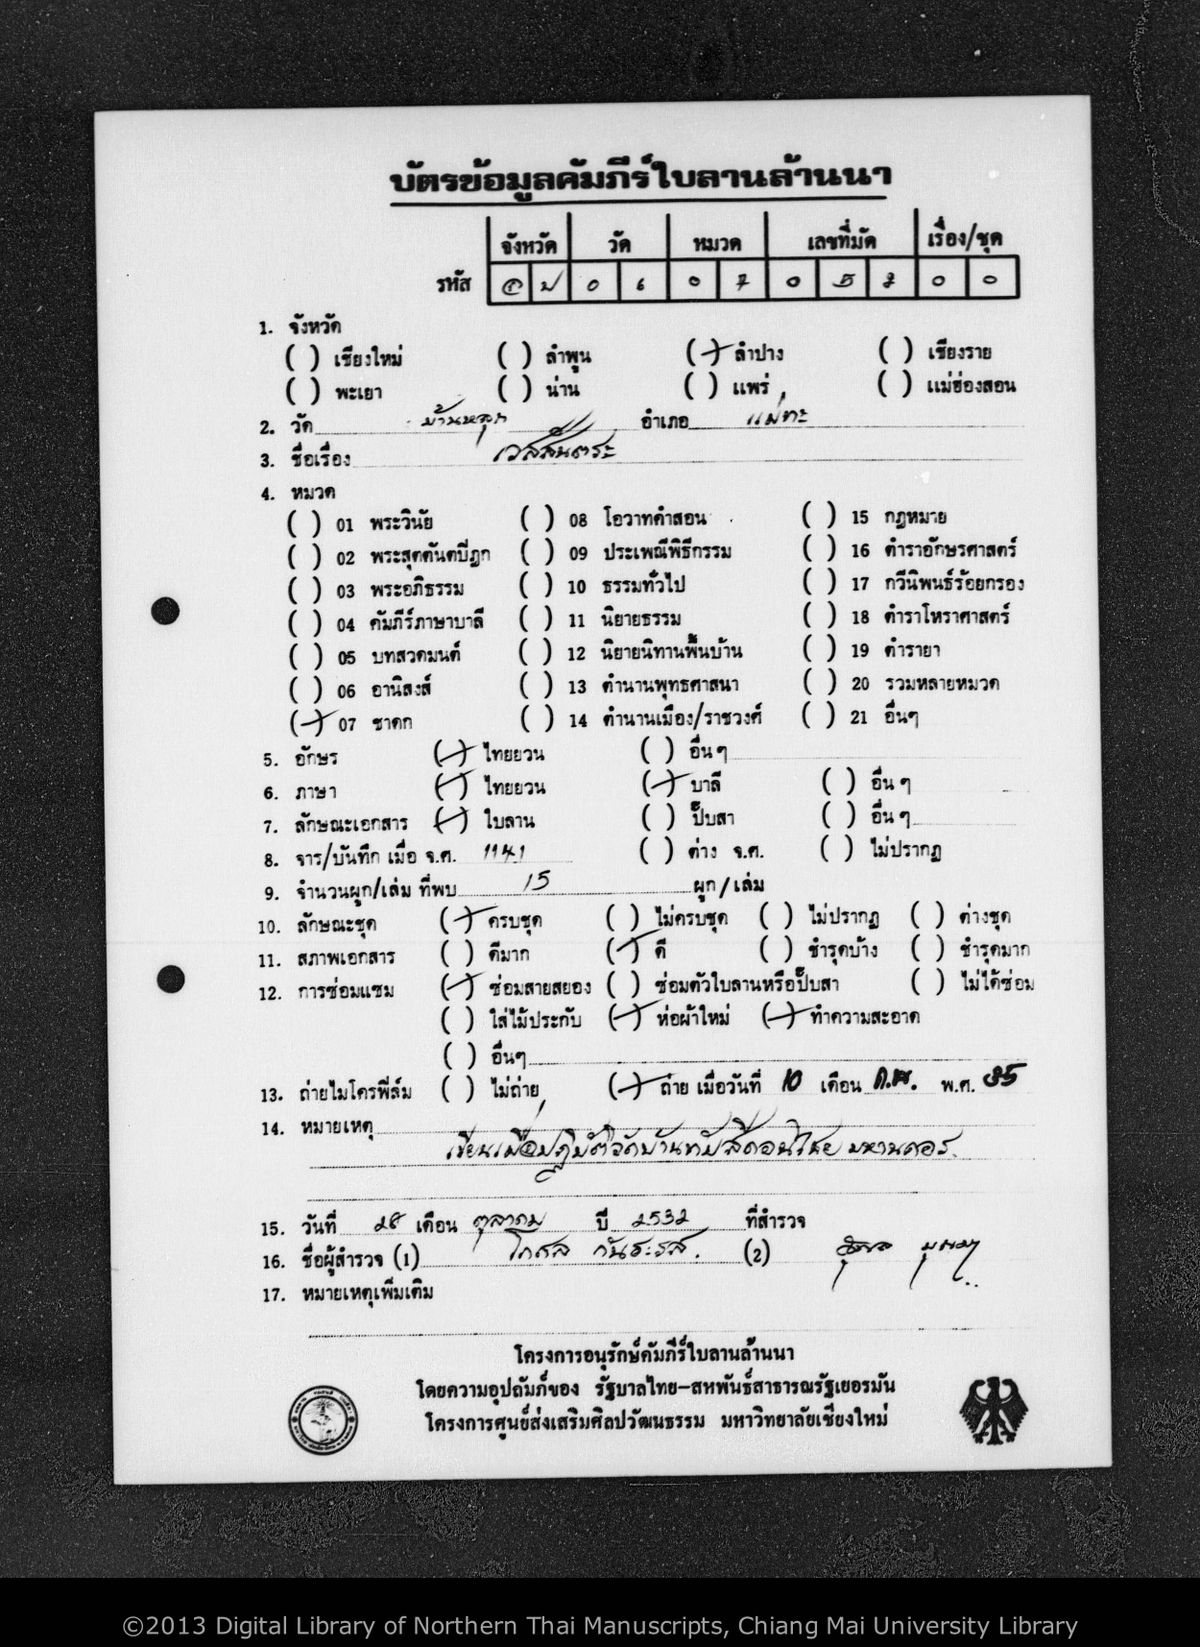 บัตรข้อมูลคัมภีร์ใบลานล้านนา
จังหวัด วัด หมวด เลขที่มัด เรื่อง/ชุด
รหัส ลป 0 6 0 7 0 5 2 0 0
1. จังหวัด
( ) เชียงใหม่ ( ) ลำพูน (/) ลำปาง ( ) เชียงราย
( ) พะเยา ( ) น่าน ( ) แพร่ ( ) แม่ฮ่องสอน
2. วัด บ้านหลุก อำเภอ แม่ทะ
3. ชื่อเรื่อง เวสสันตระ
4. หมวด
( ) 01 พระวินัย ( ) 08 โอวาทคำสอน ( ) 15 กฎหมาย
( ) 02 พระสุตตันตปิฎก ( ) 09 ประเพณีพิธีกรรม ( ) 16 ตำราอักษรศาสตร์
( ) 03 พระอภิธรรม ( ) 10 ธรรมทั่วไป ( ) 17 กวีนิพนธ์ร้อยกรอง
( ) 04 คัมภีร์ภาษาบาลี ( ) 11 นิยายธรรม ( ) 18 ตำราโหราศาสตร์
( ) 05 บทสวดมนต์ ( ) 12 นิยายนิทานพื้นบ้าน ( ) 19 ตำรายา
( ) 06 อานิสงส์ ( ) 13 ตำนานพุทธศาสนา ( ) 20 รวมหลายหมวด
(/) 07 ชาดก ( ) 14 ตำนานเมือง/ราชวงศ์ ( ) 21 อื่นๆ
5. อักษร (/) ไทยยวน ( ) อื่น ๆ
6. ภาษา (/) ไทยยวน (/) บาลี ( ) อื่น ๆ
7. ลักษณะเอกสาร (/) ใบลาน ( ) ปั๊บสา ( ) อื่น ๆ
8. จาร/บันทึก เมื่อ จ.ศ. 1141 ( ) ต่าง จ.ศ. ( ) ไม่ปรากฏ
9. จำนวนผูก/เล่ม ที่พบ 15 ผูก/เล่ม
10. ลักษณะชุด (/) ครบชุด ( ) ไม่ครบชุด ( ) ไม่ปรากฏ ( ) ต่างชุด
11. สภาพเอกสาร ( ) ดีมาก (/) ดี ( ) ชำรุดบ้าง ( ) ชำรุดมาก
12. การซ่อมแซม (/) ซ่อมสายสยอง ( ) ซ่อมตัวใบลานหรือปั๊บสา ( ) ไม่ได้ซ่อม
( ) ใส่ไม้ประกับ (/) ห่อผ้าใหม่ (/) ทำความสะอาด
( ) อื่นๆ
13. ถ่ายไมโครฟิล์ม ( ) ไม่ถ่าย (/) ถ่าย เมื่อวันที่ 10 เดือน ก.พ. พ.ศ. 35
14. หมายเหตุ
15. วันที่ 28 เดือน ตุลาคม ปี 2532 ที่สำรวจ
16. ชื่อผู้สำรวจ (1) โกศล กันธะรส. (2)
17. หมายเหตุเพิ่มเติม
โครงการอนุรักษ์คัมภีร์ใบลานล้านนา
โดยความอุปถัมภ์ของ รัฐบาลไทย-สหพันธ์สาธารณรัฐเยอรมัน
โครงการศูนย์ส่งเสริมศิลปวัฒนธรรม มหาวิทยาลัยเชียงใหม่
©2013 Digital Library of Northern Thai Manuscripts, Chiang Mai University Library